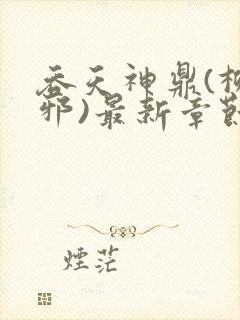 吞天神鼎(柳
邪)最新章節
煙茫